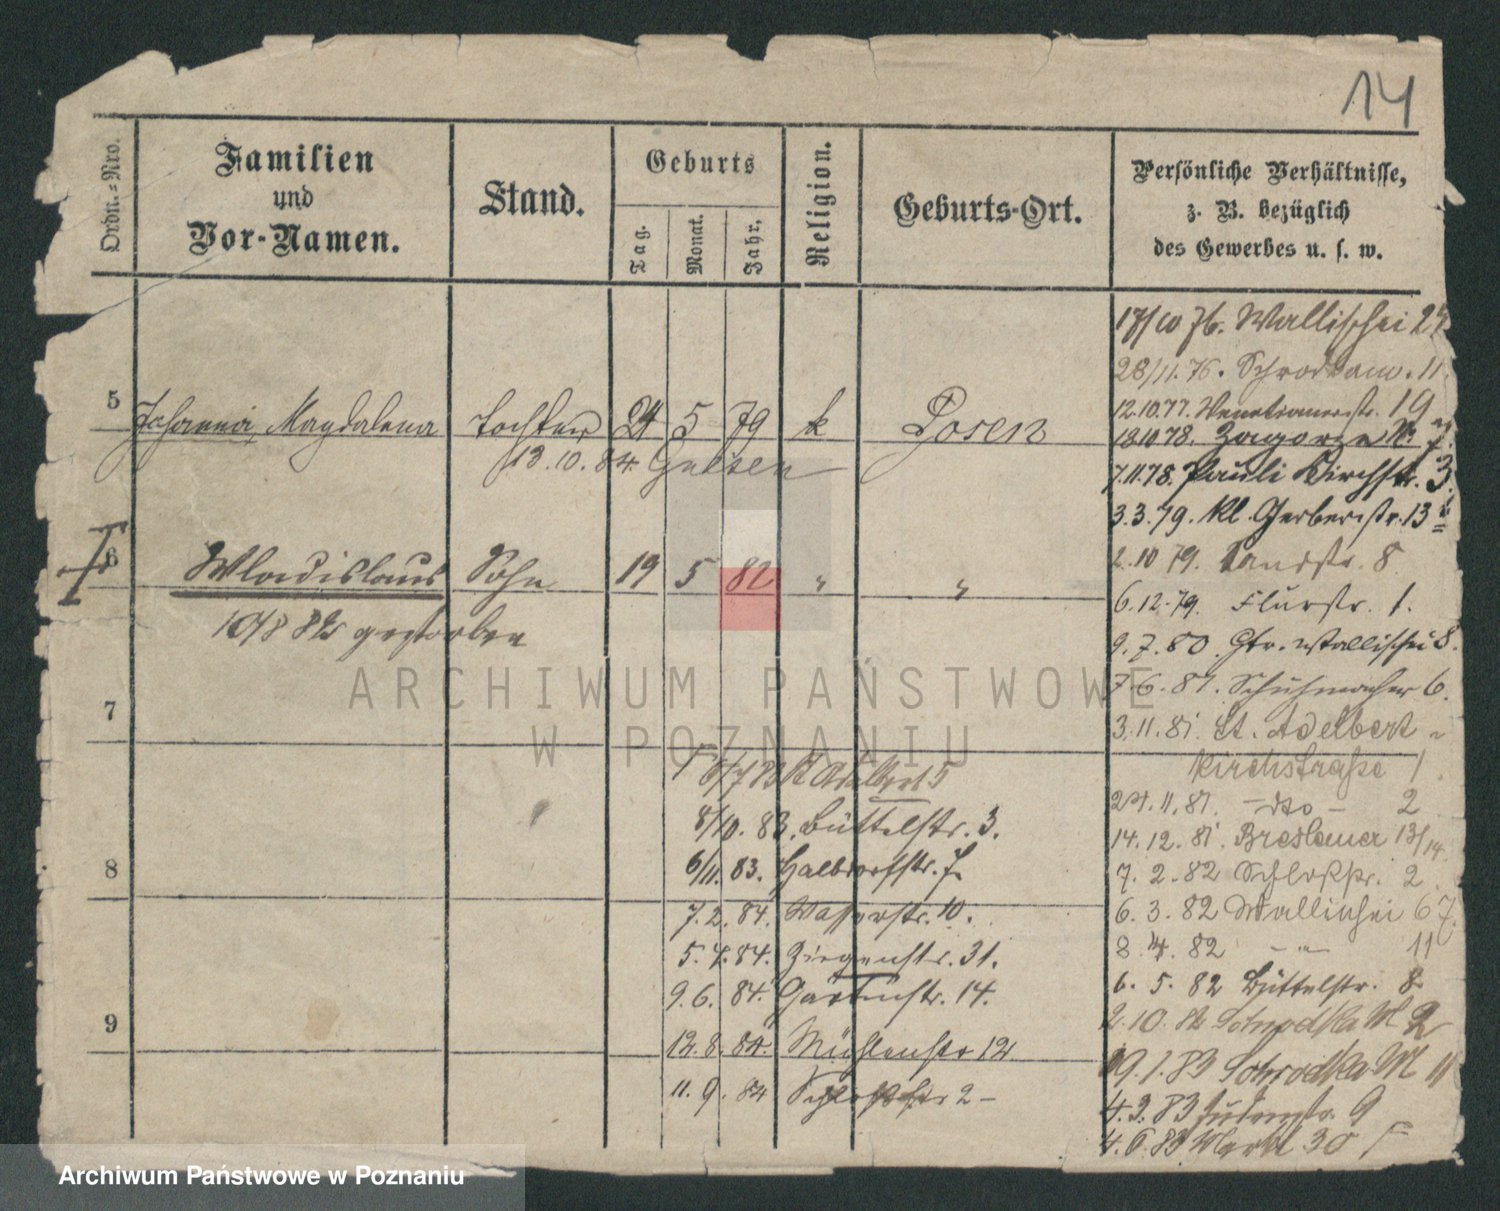 14
Ordn.-Nro.
Familien
und
Vor-Namen.
Stand.
Geburts
Tag.
Monat.
Jahr.
Religion.
Geburts-Ort.
Persönliche Verhältnisse,
z. B. bezüglich
des Gewerbes u. s. w.
5 Johanna Magdalena Tochter 24 5 79 k Posen
13.10.84. Gnesen
6 Wladislaus Sohn 19 5 82 " "
gestorben
7
8
9
17/10 76. Wallischei
28/11.76. 11
12.10.77. Venetianerstr. 19
18.10.78. Zagorze N. 7.
7.11.78. Pauli Kirchstr. 3.
3.3.79. kl. Gerberstr. 13
2.10 79. Sandstr. 8
6.12.79. Flurstr. 1.
9.7.80. Gtr. Wallischei 8.
7.6.81. Schuhmacher 6.
3.11.81. St. Adelbert-
kirchstraße 1.
24.11.81. — dto — 2
14.12.81. Breslauer 13/14
7.2.82 Schloßstr. 2
6.3.82 Wallischei 67.
8.4.82 — " — 11
6.5.82 Büttelstr. 8.
2.10.82 Schrodka M 2
19.1.83 Schrodka M 11
4.3.83 Judenstr. 9
4.6.83 30
Adelbert 5
8/10.83. Büttelstr. 3.
6/11.83. Halbdorfstr. 7.
7.2.84. Wasserstr. 10.
5.4.84. Ziegenstr. 31.
9.6.84. Gartenstr. 14.
12.8.84. Mühlenstr 12
11.9.84 Schloßstr 2 —
ARCHIWUM PAŃSTWOWE
W POZNANIU
Archiwum Państwowe w Poznaniu